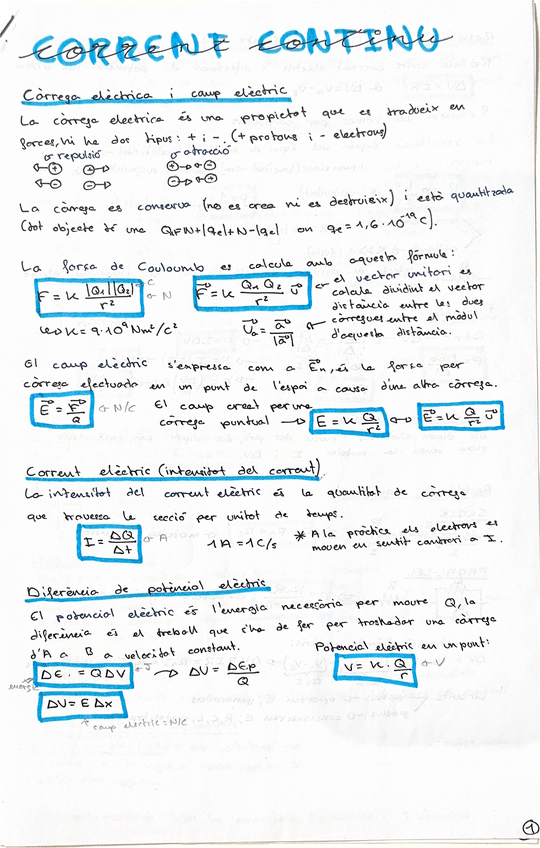 CORRENT CONTINU
corrent continu
Càrrega elèctrica i camp elèctric
La càrrega electrica és una propietat que es tradueix en
forces, hi ha dos tipus: + i -. (+ protons i - electrons)
repulsió atracció
La càrrega es conserva (no es crea ni es destrueix) i està quantitzada
(tot objecte té una Q=N+|qe|+N-|qe| on qe = 1,6·10⁻¹⁹ C).
La força de Couloumb es calcula amb aquesta fórmula:
F = K |Q1||Q2| / r² C N
F = K Q1 Q2 / r² u
el vector unitari es
calcula dividint el vector
distància entre les dues
càrregues entre el mòdul
d'aquesta distància.
K = 9·10⁹ Nm²/C²
Ua = a / |a|
El camp elèctric s'expressa com a E, és la força per
càrrega efectuada en un punt de l'espai a causa d'una altra càrrega.
E = F / Q N/C
El camp creat per una
càrrega puntual → E = K Q / r² E = K Q / r² u
Corrent elèctric (intensitat del corrent)
La intensitat del corrent elèctric és la quantitat de càrrega
que travessa la secció per unitat de temps.
I = ΔQ / Δt A 1A = 1C/s
* A la pràctica els electrons es
mouen en sentit contrari a I.
Diferència de potèncial elèctric
El potencial elèctric és l'energia necessària per moure Q, la
diferència és el treball que s'ha de fer per traslladar una càrrega
d'A a B a velocitat constant.
Potencial elèctric en un punt:
ΔE = Q ΔV J → ΔV = ΔEp / Q
V = K · Q / r V
energia
ΔV = E Δx
camp elèctric = N/C
1